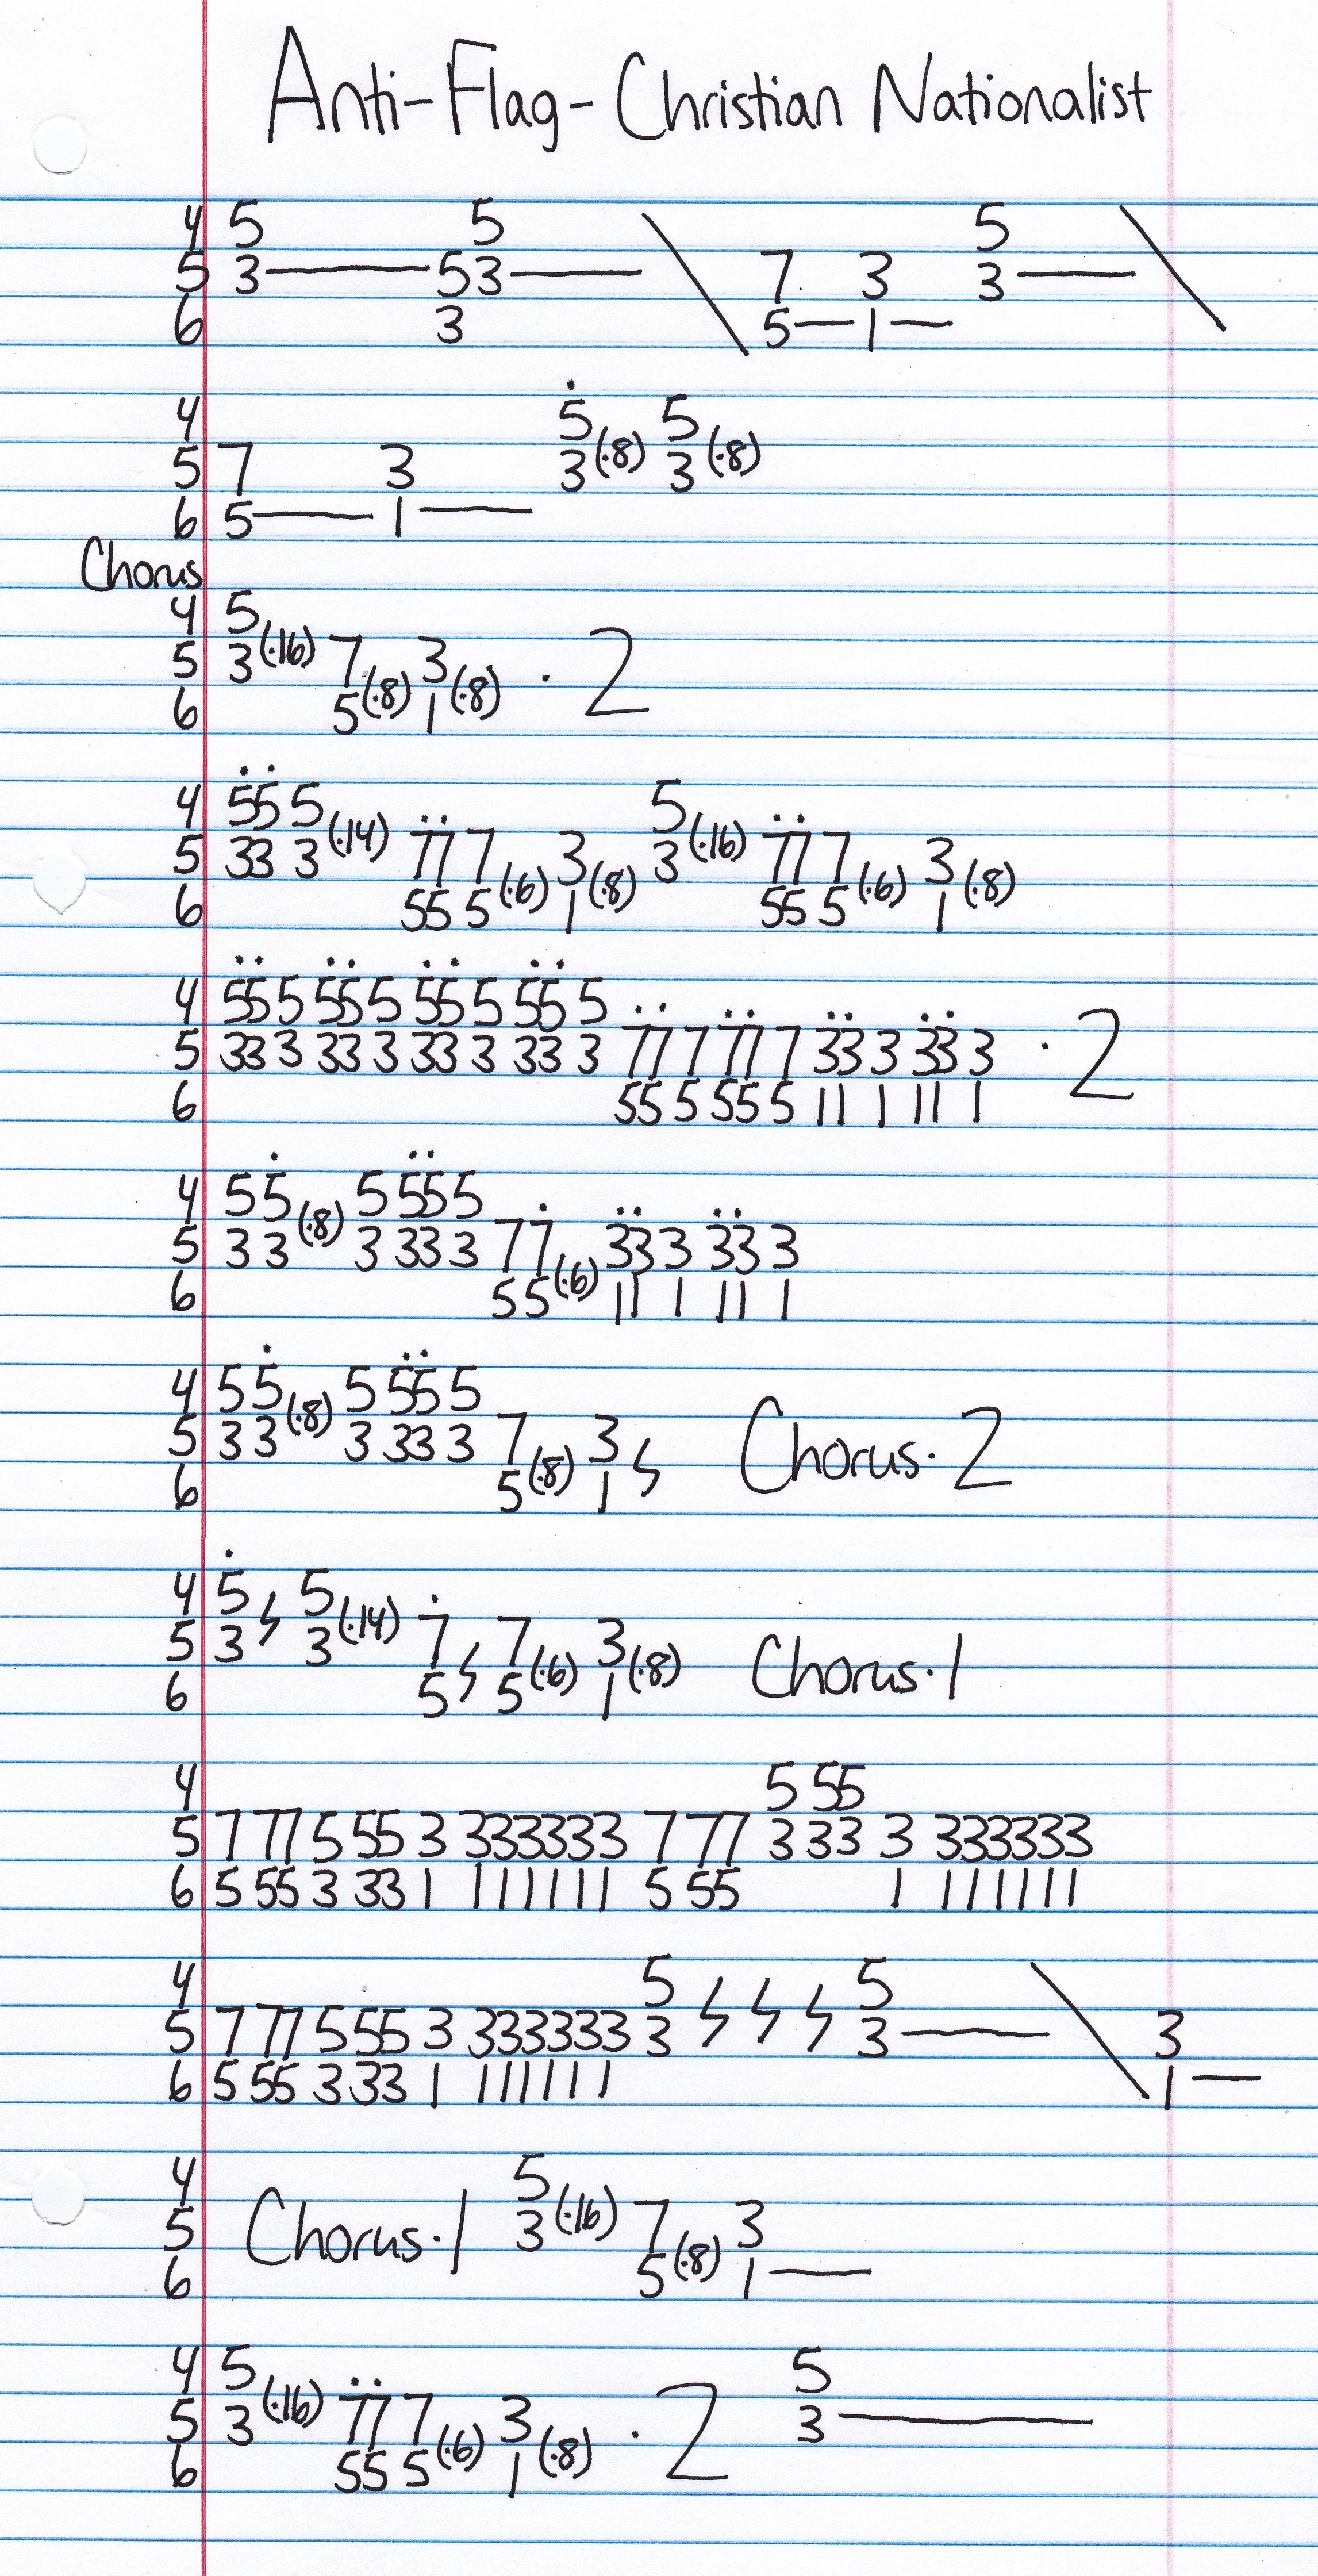 Anti-Flag - Christian Nationalist
4 5 5 5
5 3 — 53 — \ 7 3 3 — \
6 3 5 — 1 —
4 5 5
5 7 3 3(·8) 3(·8)
6 5 — 1 —
Chorus
4 5
5 3(·16) 7 3 · 2
6 5(·8) 1(·8)
4 55 5 5
5 33 3(·14) 77 7 3 3(·16) 77 7 3
6 55 5(·6) 1(·8) 55 5(·6) 1(·8)
4 55 5 55 5 55 5 55 5
5 33 3 33 3 33 3 33 3 77 7 77 7 33 3 33 3 · 2
6 55 5 55 5 11 1 11 1
4 5 5 5 55 5
5 3 3(·8) 3 33 3 7 7 33 3 33 3
6 5 5(·6) 11 1 11 1
4 5 5 5 55 5
5 3 3(·8) 3 33 3 7 3 Chorus·2
6 5(·8) 1
4 5 5
5 3 3(·14) 7 7 3 Chorus·1
6 5 5(·6) 1(·8)
4 5 55
5 7 77 5 55 3 333333 7 77 3 33 3 333333
6 5 55 3 33 1 111111 5 55 1 111111
4 5 5
5 7 77 5 55 3 333333 3 3 — \ 3
6 5 55 3 33 1 111111 1 —
4 5
5 Chorus·1 3(·16) 7 3
6 5(·8) 1 —
4 5 5
5 3(·16) 77 7 3 · 2 3 —
6 55 5(·6) 1(·8)